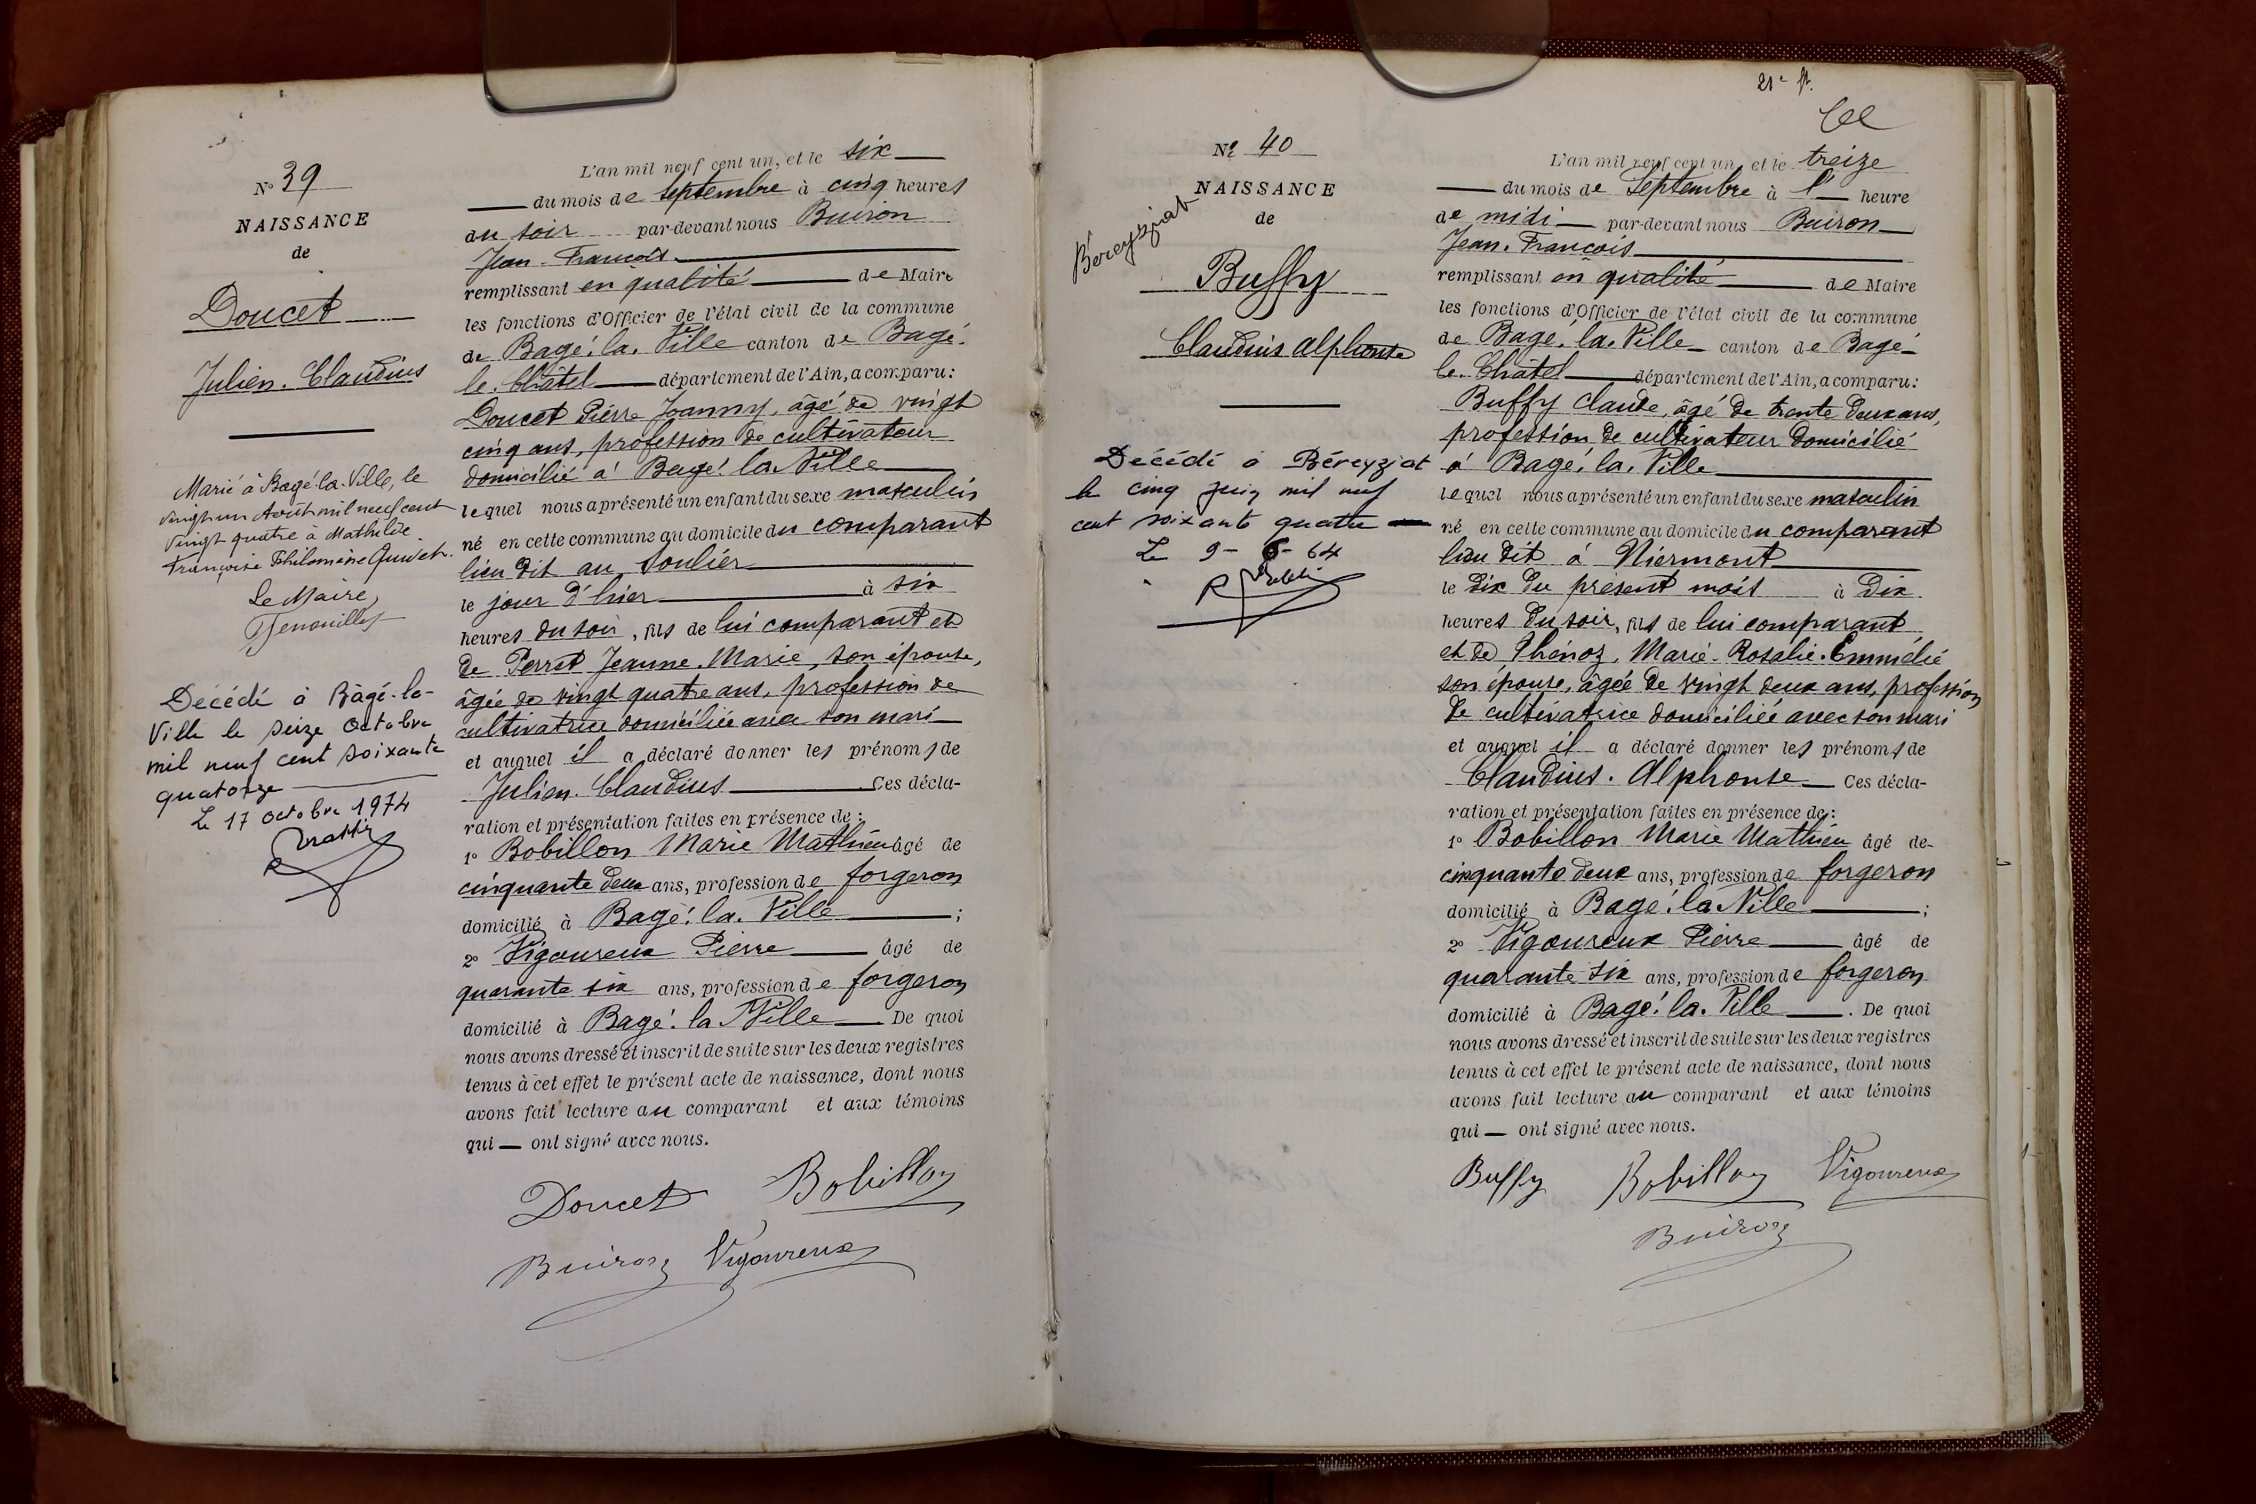 N° 39
NAISSANCE
de
Doucet
Julien. Claudius
Marié à Bagé-la-Ville, le
vingt un Août mil neuf cent
vingt quatre à Mathilde
Françoise Philomène
Le Maire,
Décédé à Bâgé-la-
Ville le seize Octobre
mil neuf cent soixante
quatorze
Le 17 octobre 1974
L'an mil neuf cent un, et le six
du mois de septembre à cinq heures
du soir par-devant nous Buiron
Jean-François
remplissant en qualité de Maire
les fonctions d'Officier de l'état civil de la commune
de Bagé-la-Ville canton de Bagé-
le-Châtel département de l'Ain, a comparu:
Doucet Pierre Joanny, âgé de vingt
cinq ans, profession de cultivateur
domicilié à Bagé-la-Ville
lequel nous a présenté un enfant du sexe masculin
né en cette commune au domicile du comparant
lieu dit au Soulier
le jour d'hier à six
heures du soir, fils de lui comparant et
de Perret Jeanne-Marie, son épouse,
âgée de vingt quatre ans, profession de
cultivatrice domiciliée avec son mari
et auquel il a déclaré donner les prénoms de
Julien. Claudius Ces décla-
ration et présentation faites en présence de:
1° Bobillon Marie Mathieu âgé de
cinquante deux ans, profession de forgeron
domicilié à Bagé-la-Ville ;
2° Vigoureux Pierre âgé de
quarante six ans, profession de forgeron
domicilié à Bagé-la-Ville De quoi
nous avons dressé et inscrit de suite sur les deux registres
tenus à cet effet le présent acte de naissance, dont nous
avons fait lecture au comparant et aux témoins
qui — ont signé avec nous.
Doucet Bobillon
Buiron Vigoureux
21e ft.
N° 40
NAISSANCE
de
Béreyziat
Buffy
Claudius Alphonse
Décédé à Béreyziat
le cinq juin mil neuf
cent soixante quatre
Le 9-6-64
L'an mil neuf cent un, et le treize
du mois de Septembre à l' heure
de midi par-devant nous Buiron
Jean-François
remplissant en qualité de Maire
les fonctions d'Officier de l'état civil de la commune
de Bagé-la-Ville canton de Bagé-
le-Châtel département de l'Ain, a comparu:
Buffy Claude, âgé de trente deux ans,
profession de cultivateur domicilié
à Bagé-la-Ville
lequel nous a présenté un enfant du sexe masculin
né en cette commune au domicile du comparant
lieu dit à Niermont
le dix du présent mois à dix
heures du soir, fils de lui comparant
et de Thénoz, Marie-Rosalie-Emmélie
son épouse, âgée de vingt deux ans, profession
de cultivatrice domiciliée avec son mari
et auquel il a déclaré donner les prénoms de
Claudius. Alphonse Ces décla-
ration et présentation faites en présence de:
1° Bobillon Marie Mathieu âgé de
cinquante deux ans, profession de forgeron
domicilié à Bagé-la-Ville ;
2° Vigoureux Pierre âgé de
quarante six ans, profession de forgeron
domicilié à Bagé-la-Ville . De quoi
nous avons dressé et inscrit de suite sur les deux registres
tenus à cet effet le présent acte de naissance, dont nous
avons fait lecture au comparant et aux témoins
qui — ont signé avec nous.
Buffy Bobillon Vigoureux
Buiron